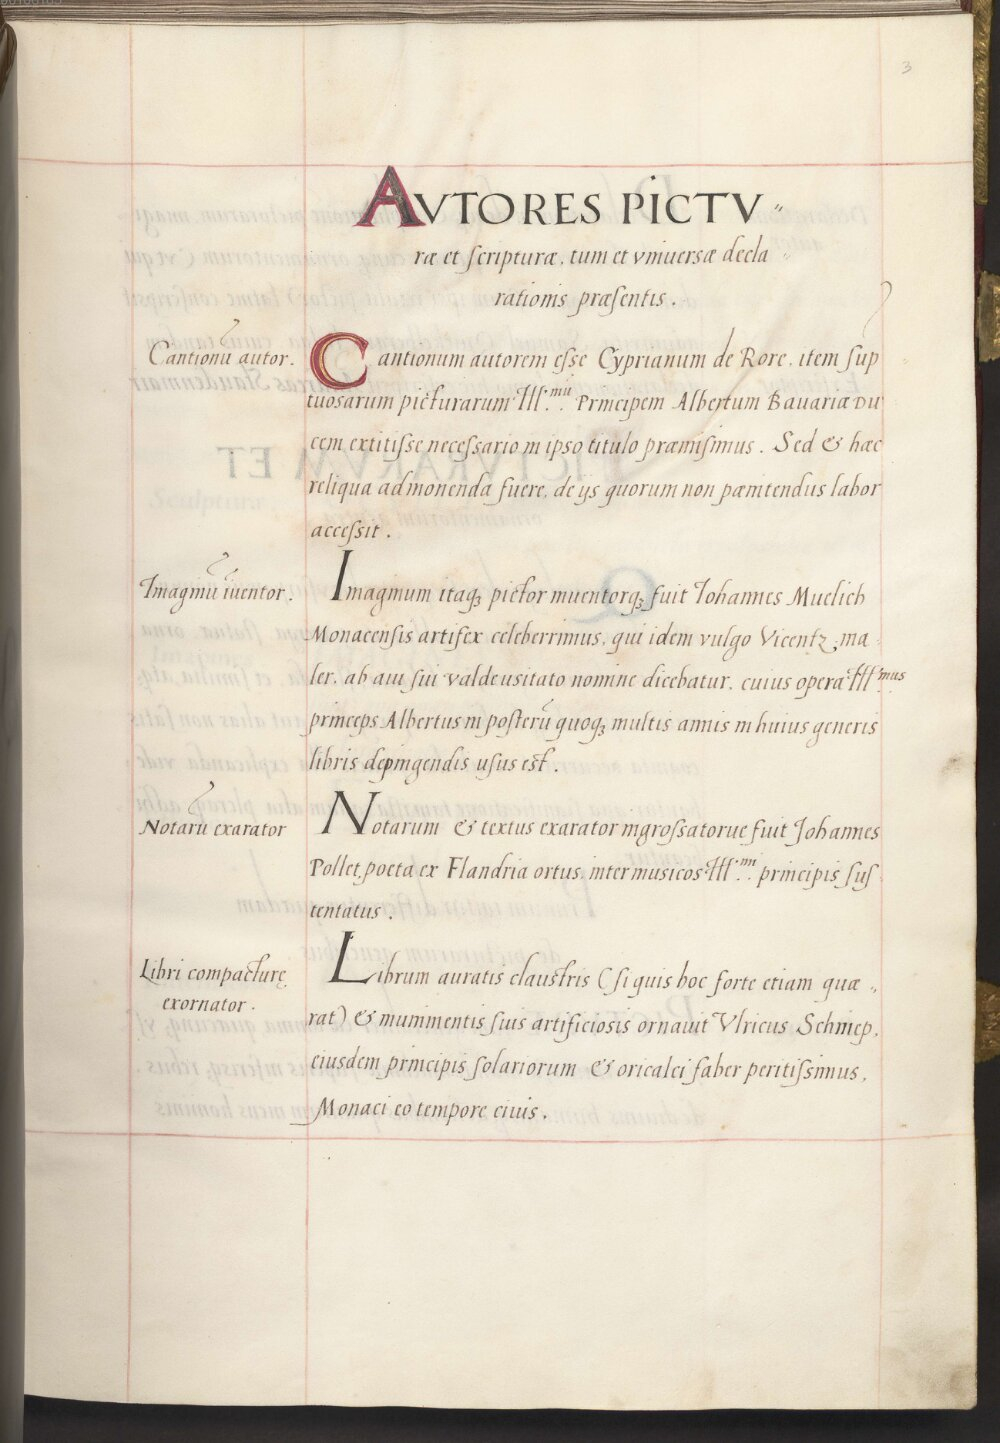 3
AVTORES PICTV〃
ræ et scripturæ, tum et vniuersæ decla〃
rationis præsentis.
Cantionū autor.
Cantionum autorem esse Cyprianum de Rore, item sup
tuosarum picturarum Ill.mũ Principem Albertum Bauariæ Du
cem extitisse necessario in ipso titulo præmisimus. Sed & hæc
reliqua admonenda fuere, de ijs quorum non pænitendus labor
accessit.
Imaginū iuentor.
Imaginum itaqȝ pictor inuentorqȝ fuit Iohannes Muelich
Monacensis artifex celeberrimus, qui idem vulgo Vicentz, ma
ler, ab aui sui valde usitato nomine dicebatur, cuius opera Illmus
princeps Albertus in posterū quoqȝ multis annis in huius generis
libris depingendis usus est.
Notarū exarator
Notarum & textus exarator ingrossatorue fuit Iohannes
Pollet, poeta ex Flandria ortus, inter musicos Ill.mi principis sus
tentatus.
Libri compacturę
exornator.
Librum auratis claustris (si quis hoc forte etiam quæ〃
rat) & munimentis suis artificiosis ornauit Vlricus Schniep,
eiusdem principis solariorum & oricalci faber peritissimus,
Monaci eo tempore ciuis.